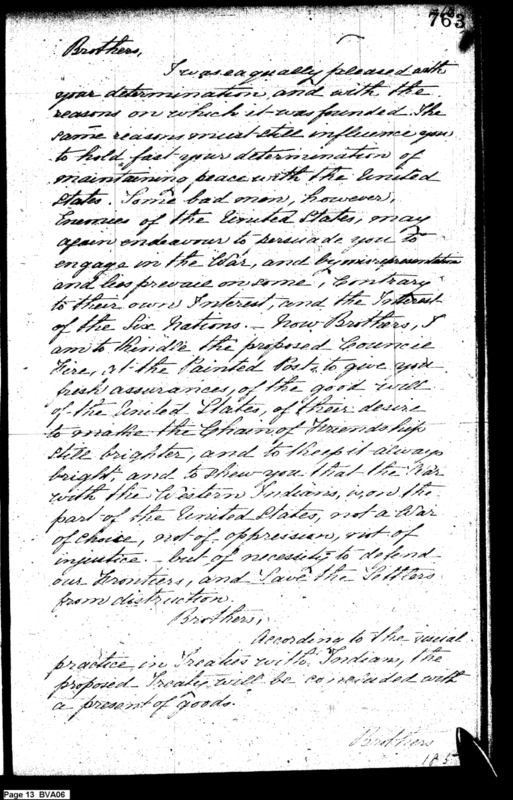 763
Brothers,
I was equally pleased with
your determination, and with the
reasons on which it was founded. The
same reasons must still influence you
to hold fast your determination of
maintaining peace with the United
States. Some bad men, however,
Enemies of the United States, may
again endeavour to persuade you to
engage in the War, and by misrepresentation
and lies prevail on some, Contrary
to their own Interest, and the Interest
of the Six Nations. — Now Brothers, I
am to Kindle the proposed Council
Fire, at the Painted Post, to give you
fresh assurances, of the good will
of the United States, of their desire
to make the Chain of Friendship
still brighter, and to keep it always
bright, and to shew you that the War
with the Western Indians, is, on the
part of the United States, not a War
of choice, not of oppression, not of
injustice. but of necessity to defend
our Frontiers, and Save the Settlers
from distruction.
Brothers,
According to the usual
practice in Treaties with Indians, the
proposed Treaty will be concluded with
a present of goods.
Brothers
Page 13 BVA06